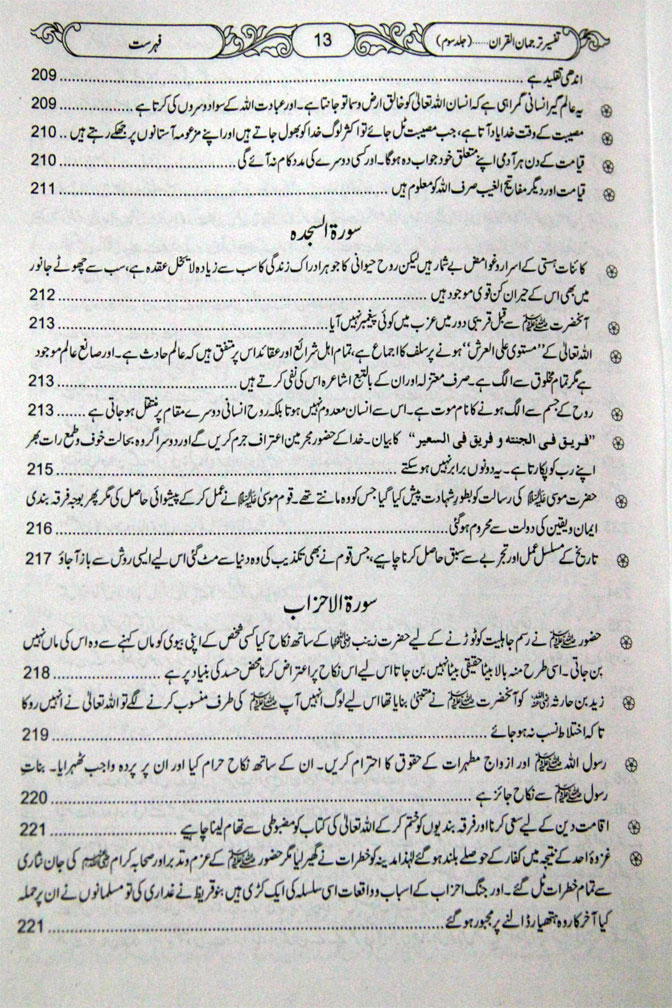 تفسیر ترجمان القرآن ...... (جلد سوم) 13 فہرست
اندھی تقلید ہے ........ 209
یہ عالم گیر انسانی گمراہی ہے کہ انسان اللہ تعالیٰ کو خالق ارض و سما تو جانتا ہے۔ اور عبادت اللہ کے سوا دوسروں کی کرتا ہے ........ 209
مصیبت کے وقت خدا یاد آتا ہے، جب مصیبت ٹل جائے تو اکثر لوگ خدا کو بھول جاتے ہیں اور اپنے مزعومہ آستانوں پر جھکے رہتے ہیں .. 210
قیامت کے دن ہر آدمی اپنے متعلق خود جواب دہ ہوگا۔ اور کسی دوسرے کی مدد کام نہ آئے گی ........ 210
قیامت اور دیگر مفاتح الغیب صرف اللہ کو معلوم ہیں ........ 211
سورۃ السجدہ
کائنات ہستی کے اسرار و غوامض بے شمار ہیں لیکن روح حیوانی کا جوہر ادراک زندگی کا سب سے زیادہ لاینحل عقدہ ہے، سب سے چھوٹے جانور
میں بھی اس کے حیران کن قوی موجود ہیں ........ 212
آنحضرت ﷺ سے قبل قریبی دور میں عرب میں کوئی پیغمبر نہیں آیا ........ 213
اللہ تعالیٰ کے ”مستوی علی العرش“ ہونے پر سلف کا اجماع ہے، تمام اہل شرائع اور عقائد اس پر متفق ہیں کہ عالم حادث ہے۔ اور صانع عالم موجود
ہے مگر تمام مخلوق سے الگ ہے۔ صرف معتزلہ اور ان کے بالتبع اشاعرہ اس کی نفی کرتے ہیں ........ 213
روح کے جسم سے الگ ہونے کا نام موت ہے۔ اس سے انسان معدوم نہیں ہوتا بلکہ روح انسانی دوسرے مقام پر منتقل ہو جاتی ہے ....... 213
”فریق فی الجنته و فریق فی السعیر“ کا بیان۔ خدا کے حضور مجرمین اعتراف جرم کریں گے اور دوسرا گروہ بحالت خوف و طمع رات بھر
اپنے رب کو پکارتا ہے۔ یہ دونوں برابر نہیں ہو سکتے ........ 215
حضرت موسیٰ علیہ السلام کی رسالت کو بطور شہادت پیش کیا گیا جس کو وہ مانتے تھے۔ قوم موسیٰ علیہ السلام نے عمل کر کے پیشوائی حاصل کی مگر پھر بوجہ فرقہ بندی
ایمان و یقین کی دولت سے محروم ہو گئی ........ 216
تاریخ کے مسلسل عمل اور تجربے سے سبق حاصل کرنا چاہیے، جس قوم نے بھی تکذیب کی وہ دنیا سے مٹ گئی اس لیے ایسی روش سے باز آجاؤ 217
سورۃ الاحزاب
حضور ﷺ نے رسم جاہلیت کو توڑنے کے لیے حضرت زینب رضی اللہ عنہا کے ساتھ نکاح کیا کسی شخص کے اپنی بیوی کو ماں کہنے سے وہ اس کی ماں نہیں
بن جاتی۔ اسی طرح منہ بالا بیٹا حقیقی بیٹا نہیں بن جاتا اس لیے اس نکاح پر اعتراض کرنا محض حسد کی بنیاد پر ہے ........ 218
زید بن حارثہ رضی اللہ عنہ کو آنحضرت ﷺ نے متبنیٰ بنایا تھا اس لیے لوگ انہیں آپ ﷺ کی طرف منسوب کرنے لگے تو اللہ تعالیٰ نے انہیں روکا
تاکہ اختلاط نسب نہ ہو جائے ........ 219
رسول اللہ ﷺ اور ازواج مطہرات کے حقوق کا احترام کریں۔ ان کے ساتھ نکاح حرام کیا اور ان پر پردہ واجب ٹھہرایا۔ بنات
رسول ﷺ سے نکاح جائز ہے ........ 220
اقامت دین کے لیے سعی کرنا اور فرقہ بندیوں کو ختم کر کے اللہ تعالیٰ کی کتاب کو مضبوطی سے تھام لینا چاہیے ........ 221
غزوۂ احد کے نتیجہ میں کفار کے حوصلے بلند ہو گئے لہٰذا مدینہ کو خطرات نے گھیر لیا مگر حضور ﷺ کے عزم و تدبر اور صحابہ کرام کی جان نثاری
سے تمام خطرات ٹل گئے۔ اور جنگ احزاب کے اسباب و واقعات اسی سلسلہ کی ایک کڑی ہیں بنو قریظہ نے غداری کی تو مسلمانوں نے ان پر حملہ
کیا آخر کار وہ ہتھیار ڈالنے پر مجبور ہو گئے ........ 221